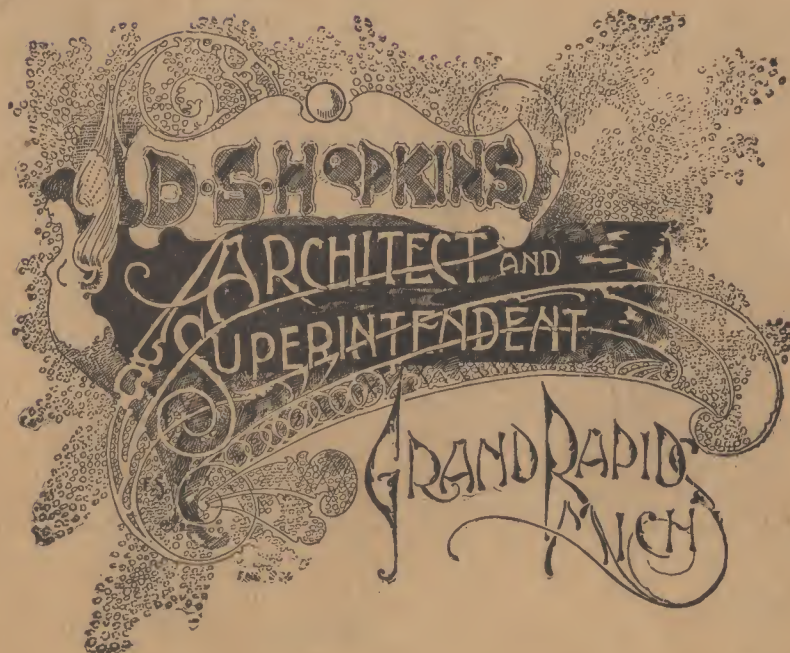 D·S·HOPKINS
ARCHITECT AND
SUPERINTENDENT
GRAND RAPIDS
MICH